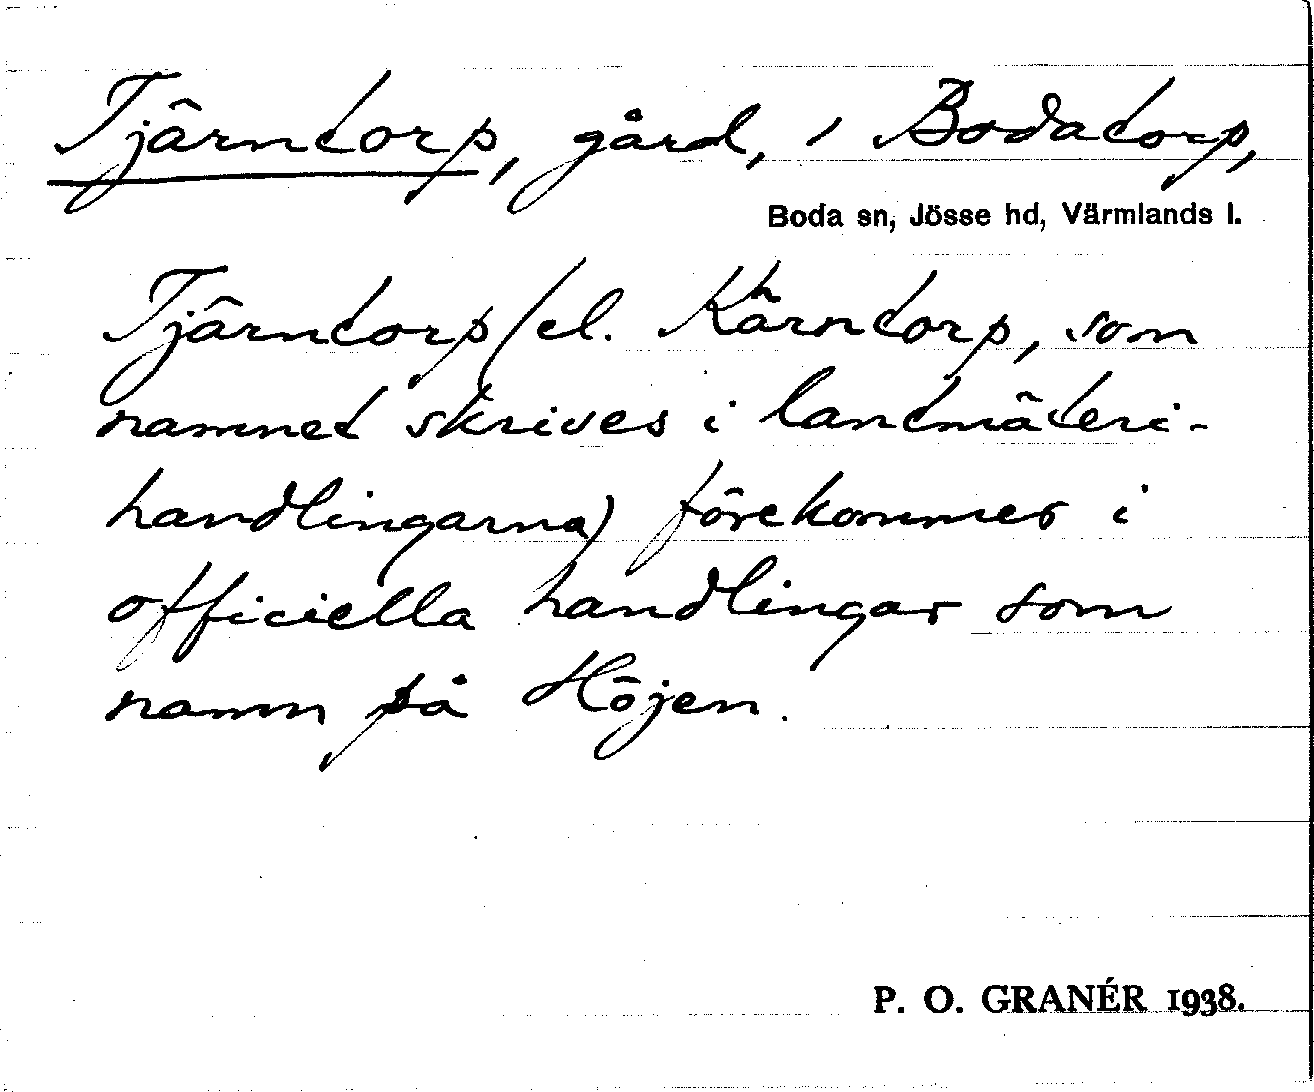 Tjärntorp, gård, i Bodatorp,
Boda sn, Jösse hd, Värmlands l.
Tjärntorp (el. Kärntorp, som
namnet skrives i lantmäteri-
handlingarna) förekommer i
officiella handlingar som
namn på Höjen.
P. O. GRANÉR 1938.